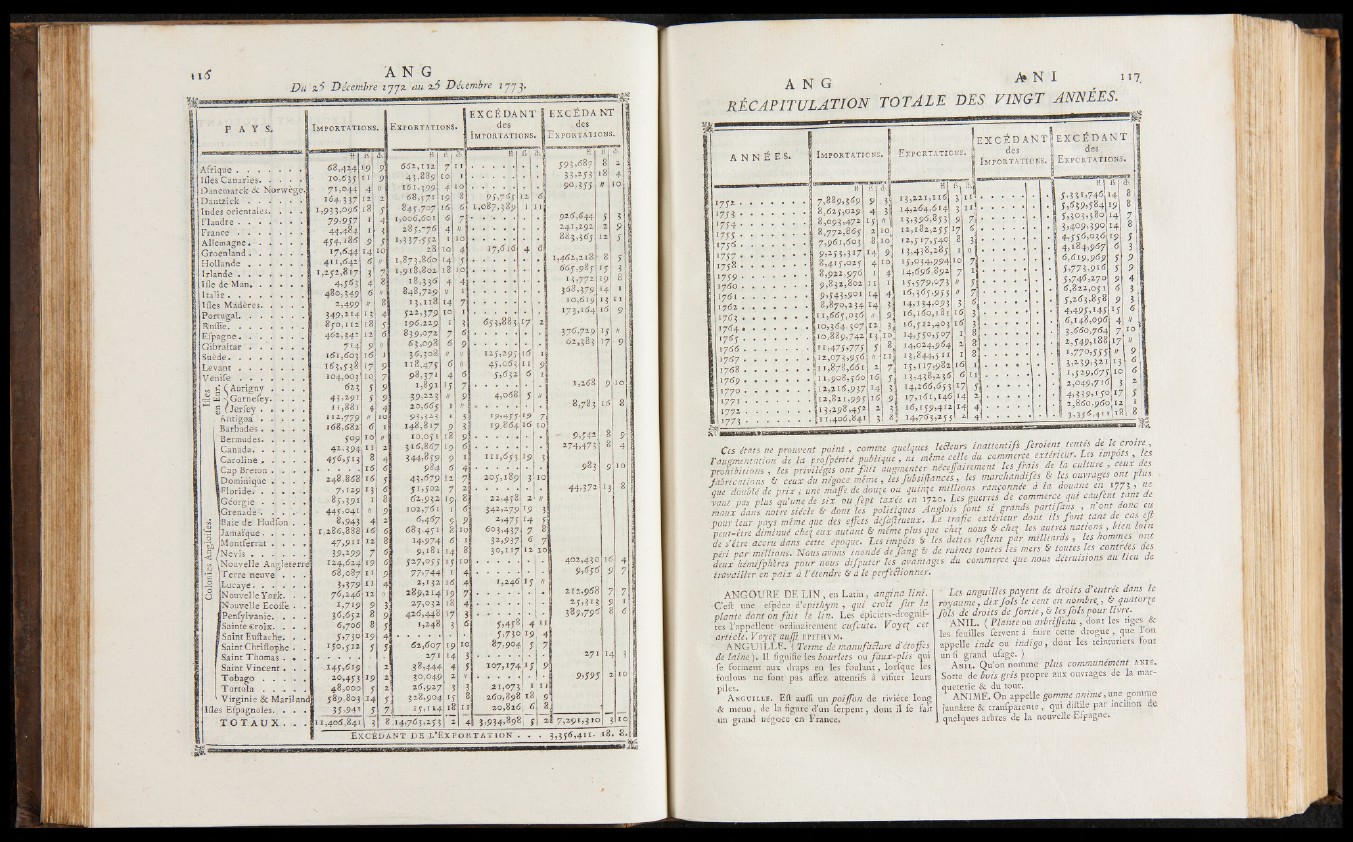 116 ANG
Du 25 Décembre 1772 au 25 Décembre 1773.
PAYS. IMPORTATIONS. EXPORTATIONS. EXCÉDANT des IMPORTATIONS. EXCÉDANT des EXPORTATIONS.
Afrique . . . . 68,424 19 9 662,112 7 11 593,687 8 2
Isles Canaries. . . . 10,635 11 9 43,889 10 1 33,253 18 4
Danemarck & Norwége. 71,044 4 " 161,399 4 10 90,355 " 10
Dantzick . . . . 164,337 12 2 68,571 19 8 95,765 12 6
Indes orientales. . . . 1,933,096 18 5 845,707 16 6 1,087,389 1 11
Flandre . . . . 79,957 1 4 1,006,601 6 7 926,644 5 3
France . . . . 44,484 1 3 285,776 4 " 241,292 2 9
Allemagne. . . . 454,186 9 5 1,337,552 1 10 883,365 12 5
Groenland. . . . 17,644 14 10 28 10 4 17,616 4 6
Hollande . . . . 411,642 6 " 1,873,860 14 5 1,462,218 8 5
Irlande . . . . 1,252,817 3 7 1,918,802 18 10 665,985 15 3
Isle de Man. . . . 4,563 4 8 18,336 4 4 13,772 19 8
Italie . . . . 480,349 6 " 848,729 " 1 368,379 14 1
Isles Madères. . . . 2,499 " 8 13,118 14 7 10,619 13 11
Portugal. . . . 349,214 13 4 522,379 10 1 173,164 16 9
Russie. . . . 850,112 18 5 196,229 1 3 653,883 17 2
Espagne. . . . 462,342 12 6 839,072 7 6 376,729 15 "
Gibraltar . . . . 714 9 " 63,098 6 9 62,383 17 9
Suède. . . . 161,603 16 1 36,308 " " 125,295 16 1
Levant . . . . 163,538 17 9 118,475 6 " 45,063 11 9
Venise . . . . 104,003 10 7 98,371 4 6 5,632 6 1
Aurigny . . . . 623 5 9 1,891 15 7 1,268 9 10
Garnesey. . . . 43,291 5 9 39,223 " 9 4,068 5 "
Jersey . . . . 11,881 4 4 20,665 1 " 8,783 16 8
Antigoa . . . . 112,779 " 10 93,323 5 3 19,455 19 7
Barbades . . . . 168,682 6 1 148,817 9 3 19,864 16 10
Bermudes. . . . 509 10 " 10,051 18 9 9,542 8 9
Canada. . . . 42,394 11 2 316,867 19 6 274,473 8 4
Caroline . . . . 456,513 8 4 344,859 9 1 111,653 19 3
Cap Breton . . . . 16 6 984 6 4 983 9 10
Dominique . . . . 248,868 16 5 43,679 12 7 205,189 3 10
Florides . . . . 7,129 13 6 51,502 7 2 44,372 13 8
Géorgie . . . . 85,391 1 8 62,932 19 8 22,458 2 "
Grenade. . . . 445,041 " 9 102,761 1 6 342,279 19 3
Baie de Hudson . . 8,943 4 2 6,467 9 9 2,475 14 5
Jamaïque . . . . 1,286,888 16 6 683,451 8 10 603,437 7 8
Montserrat . . . . 47,911 12 8 14,974 6 1 32,937 6 7
Nevis . . . . 39,299 7 6 9,181 14 8 30,117 12 10
Nouvelle Angleterre 124,624 19 6 527,055 15 10 402,430 16 4
Terre neuve . . . 68,087 11 9 77,744 1 4 9,656 9 7
Lucaye. . . . 3,379 11 4 2,132 16 4 1,246 15 "
Nouvelle York. . . 76,246 12 " 289,214 19 7 212,968 7 7
Nouvelle Ecosse . . 1,719 9 3 27,032 18 4 25,313 9 1
Pensylvanie. . . . 36,652 8 9 426,448 17 3 389,796 8 6
Sainte Croix. . . . 6,706 8 5 1,248 3 6 5,458 4 11
Saint Eustache. . . 5,730 19 4 5,730 19 4
Saint Christophe . . 150,512 5 5 62,607 19 10 87,904 5 7
Saint Thomas . . 271 14 3 271 14 3
Saint Vincent . . . 145,619 2 38,444 4 5 107,174 15 9
Tobago . . . . 20,453 19 2 30,049 2 " 9,595 2 10
Tortola . . . . 48,000 5 2 26,927 3 3 21,073 1 11
Virginie & Mariland 589,803 14 5 328,904 15 8 260,898 18 9
Isles Espagnoles. . . . 35,941 5 7 15,114 18 11 20,826 6 8
TOTAUX . . . 11,406,841 3 8 14,763,253 2 4 3,934,898 5 2 7,291,310 3 10
EXCÉDANT DE L'EXPORTATION . . . 3,356,411. 18. 8.
ANG ANI 117
RÉCAPITULATION TOTALE DES VINGT ANNÉES.
ANNÉES. IMPORTATIONS. EXPORTATIONS. EXCÉDANT des IMPORTATIONS. EXCÉDANT des EXPORTATIONS.
1752 . . . . 7,889,369 9 3 13,221,116 3 11 5,331,746 14 8
1753 . . . . 8,625,029 4 3 14,264,614 3 11 5,639,584 19 8
1754 . . . . 8,093,472 15 " 13,396,853 9 7 5,303,380 14 7
1755 . . . . 8,772,865 2 10 12,182,255 17 6 3,409,390 14 8
1756 . . . . 7,961,603 8 10 12,517,640 8 3 4,556,036 19 5
1757 . . . . 9,253,317 14 9 13,438,285 1 " 4,184,967 6 3
1758 . . . . 8,415,025 4 10 15,034,994 10 7 6,619,969 5 9
1759 . . . . 8,922,976 1 4 14,696,892 7 1 5,773,916 5 9
1760 . . . . 9,832,802 11 1 15,579,073 " 5 5,746,270 9 4
1761 . . . . 9,543,901 14 4 16,365,953 " 7 6,822,051 6 3
1762 . . . . 8,870,234 14 3 14,134,093 3 6 5,263,858 9 3
1763 . . . . 11,665,036 " 9 16,160,181 16 3 4,495,145 15 6
1764 . . . . 10,364,307 12 3 16,512,403 16 3 6,148,096 4 "
1765 . . . . 10,889,742 13 10 14,550,507 1 8 3,660,764 7 10
1766 . . . . 11,475,775 5 8 14,024,964 2 8 2,549,188 17 "
1767 . . . . 12,073,956 " 11 13,844,511 1 8 1,770,555 " 9
1768 . . . . 11,878,661 2 7 15,117,982 16 1 3,239,321 13 6
1769 . . . . 11,908,560 16 5 13,438,236 6 11 1,529,675 10 6
1770 . . . . 12,216,937 14 3 14,266,653 17 5 2,049,716 3 2
1771 . . . . 12,821,995 16 9 17,161,146 14 2 4,339,150 17 5
1772 . . . . 13,298,452 2 3 16,159,412 14 4 2,860,960 12 1
1773 . . . . 11,406,841 3 8 14,763,253 2 4 3,356,411 18 8
Ces états ne prouvent point, comme quelques lecteurs inattentifs seroient tentés de le croire,
l'augmentation de la prospérité publique, ni même celle du commerce extérieur. Les impôts, les
prohibitions, les priviléges ont fait augmenter nécessairement les frais de la culture, ceux des
fabrications & ceux du négoce même, les subsistances, les marchandises & les ouvrages ont plus
que doublé de prix, une masse de douze ou quinze millions rançonnée à la douane en 1773, ne
vaut pas plus qu'une de six ou sept taxée en 1720. Les guerres de commerce qui causent tant de
maux dans notre siècle & dont les politiques Anglois sont si grands partisans, n'ont donc eu
pour leur pays même que des effets désastreux. Le trafic extérieur dont ils font tant de cas est
peut-être diminué chez eux autant & même plus que chez nous & chez les autres nations, bien loin
de s'être accru dans cette époque. Les impôts & les dettes restent par milliards, les hommes ont
péri par millions. Nous avons inondé de sang & de ruines toutes les mers & toutes les contrées des
deux hémisphères pour nous disputer les avantages du commerce que nous détruisions au lieu de
travailler en paix à l'étendre & à le perfectionner.
ANGOURE DE LIN, en Latin, angina lini.
C'est une espèce d'epithym, qui croît sur la
plante dont on fait le lin. Les épiciers-droguis-
tes l'appellent ordinairement cuscute. Voyez cet
article. Voyez aussi EPITHYM.
ANGUILLE. (Terme de manufacture d'étoffes
de laine). Il signifie les bourlets ou faux-plis qui
se forment aux draps en les foulant, lorsque les
foulons ne sont pas assez attentifs à visiter leurs
piles.
ANGUILLE. Est aussi un poisson de rivière long
& menu, de la figure d'un serpent, dont il se fait
un grand négoce en France.
Les anguilles payent de droits d'entrée dans le
royaume, dix sols le cent en nombre, & quatorze
sols de droits de sortie, & les sols pour livre.
ANIL. (Plante ou arbrisseau, dont les tiges &
les feuilles servent à faire cette drogue, que l'on
appelle inde ou indigo, dont les teinturiers font
un si grand usage.)
ANIL. Qu'on nomme plus communément ANIS.
Sorte de bois gris propre aux ouvrages de la mar-
queterie & du tour.
ANIMÉ. On appelle gomme anime, une gomme
jaunâtre & transparente, qui distile par incision de
quelques arbres de la nouvelle Espagne.